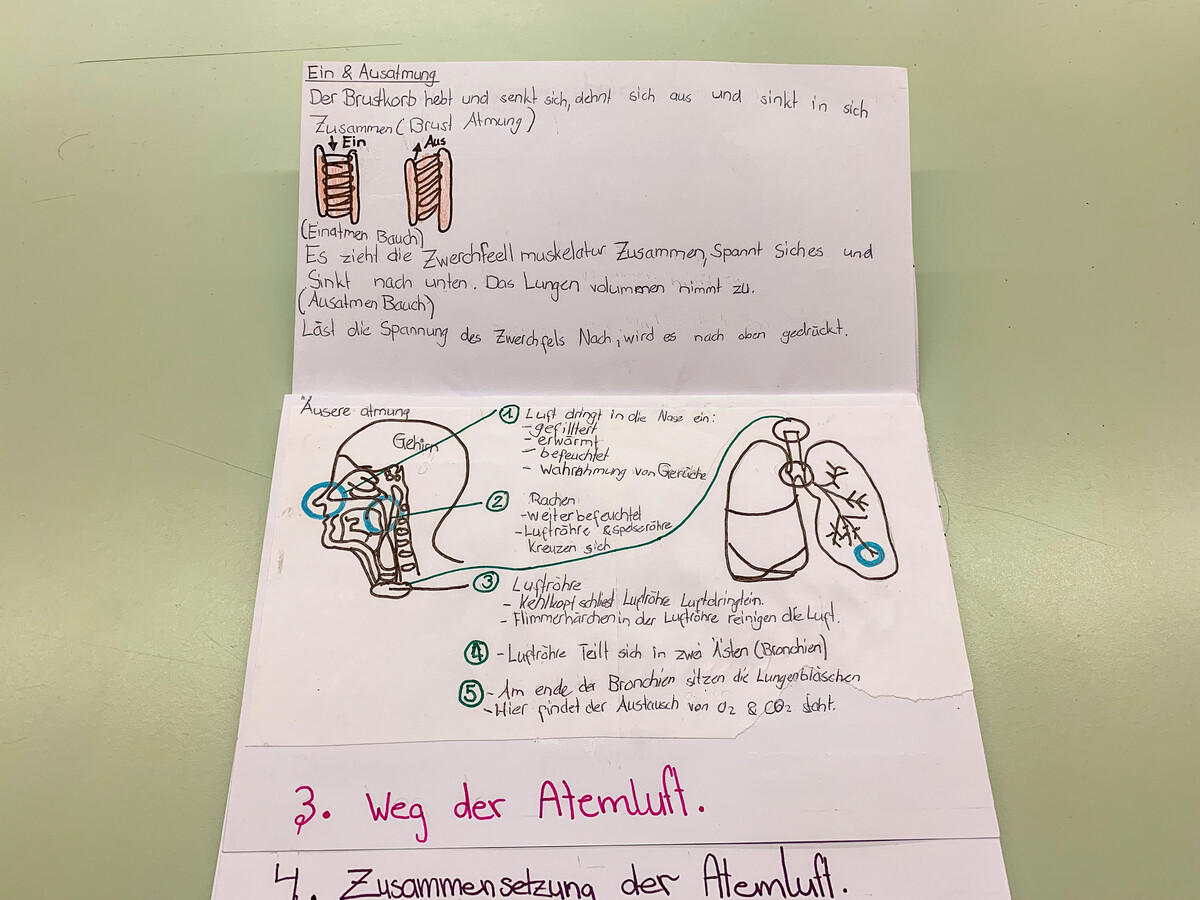 Ein & Ausatmung
Der Brustkorb hebt und senkt sich, dehnt sich aus und sinkt in sich
Zusammen (Brust Atmung)
Ein
Aus
(Einatmen Bauch)
Es zieht die Zwerchfeell muskelatur Zusammen, Spannt Siches und
Sinkt nach unten. Das Lungen volummen nimmt zu.
(Ausatmen Bauch)
Läst die Spannung des Zwerchfels Nach, wird es nach oben gedrückt.
Äusere atmung
Gehirn
1. Luft dringt in die Nase ein:
- gefilltert
- erwärmt
- befeuchtet
- Wahrahmung von Gerüche
2 Rachen
- Weiter befeuchtet
- Luftröhre & Speiseröhre
Kreuzen sich
3 Luftröhre
- Kehlkopf schliest Luftröhe Luftdringtein.
- Flimmerhärchen in der Luftröhre reinigen die Luft.
4 - Luftröhre Teilt sich in zwei Ästen (Bronchien)
5 - Am ende der Bronchien sitzen die Lungenbläschen
- Hier findet der Austausch von O2 & CO2 statt.
3. Weg der Atemluft.
4. Zusammensetzung der Atemluft.